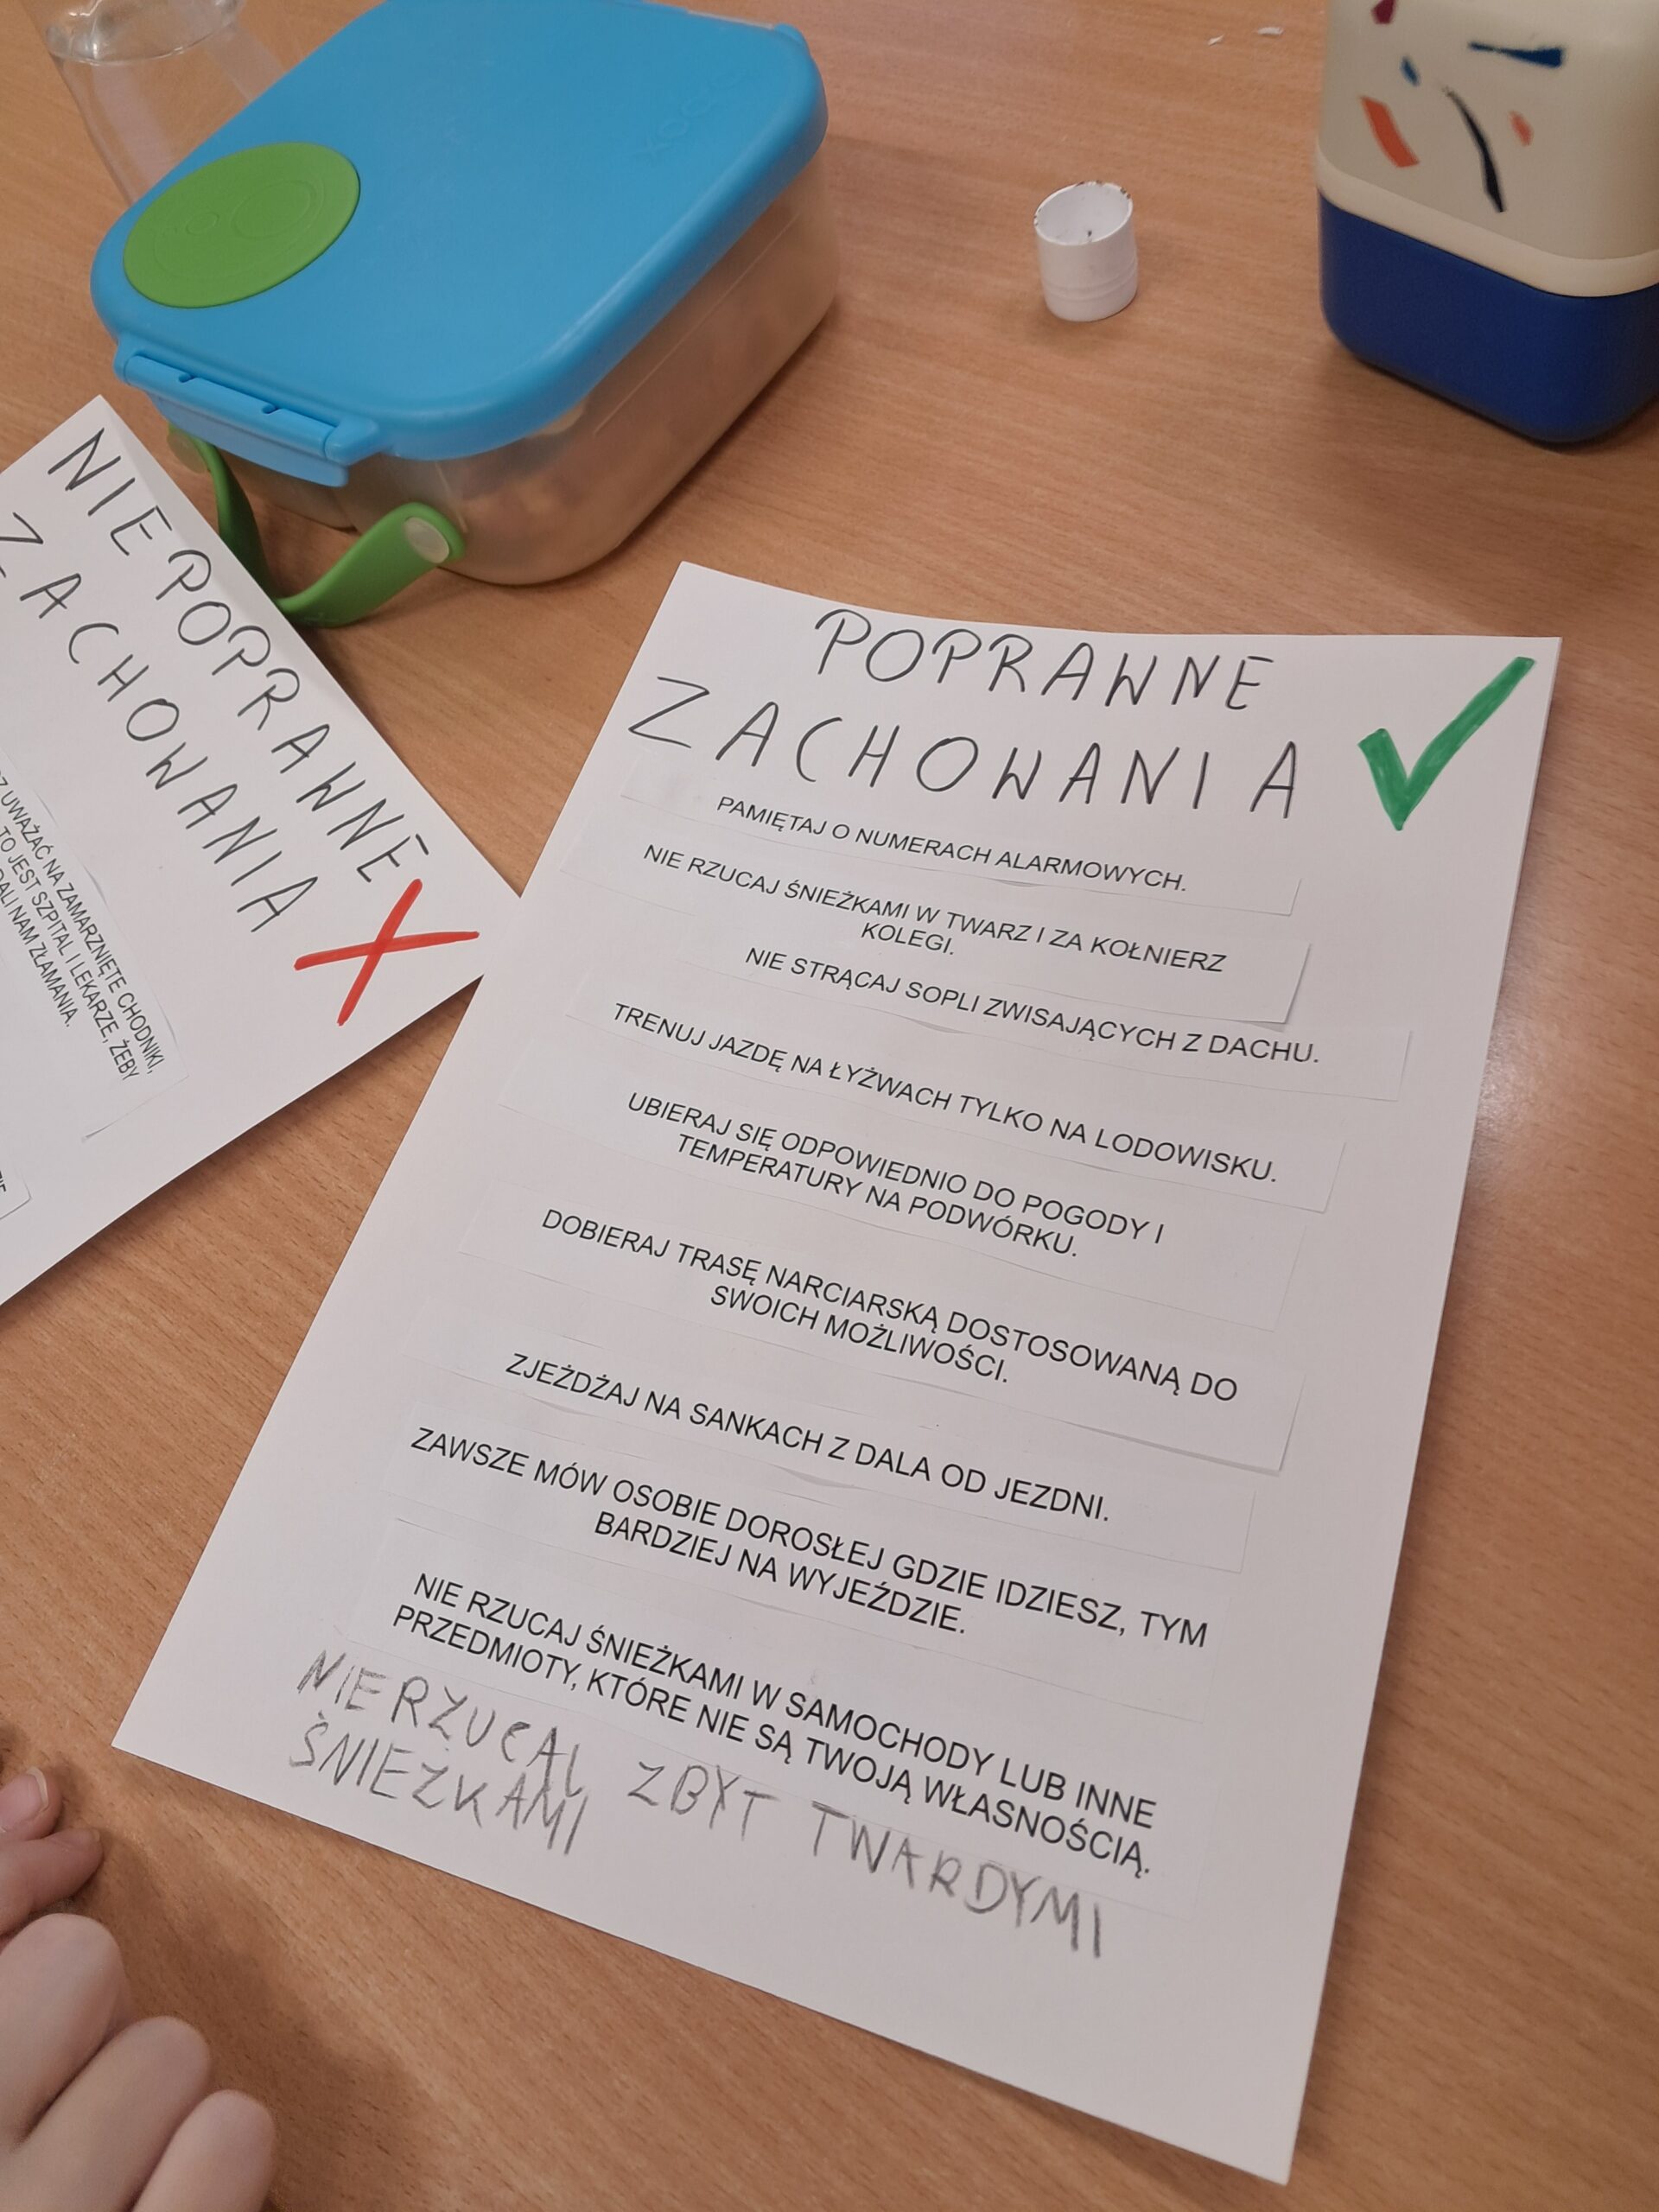 NIEPOPRAWNE
ZACHOWANIA
UWAŻAĆ NA ZAMARZNIĘTE CHODNIKI,
TO JEST SZPITAL I LEKARZE, ŻEBY
NAM ZŁAMANIA.
POPRAWNE
ZACHOWANIA
PAMIĘTAJ O NUMERACH ALARMOWYCH.
NIE RZUCAJ ŚNIEŻKAMI W TWARZ I ZA KOŁNIERZ
KOLEGI.
NIE STRĄCAJ SOPLI ZWISAJĄCYCH Z DACHU.
TRENUJ JAZDĘ NA ŁYŻWACH TYLKO NA LODOWISKU.
UBIERAJ SIĘ ODPOWIEDNIO DO POGODY I
TEMPERATURY NA PODWÓRKU.
DOBIERAJ TRASĘ NARCIARSKĄ DOSTOSOWANĄ DO
SWOICH MOŻLIWOŚCI.
ZJEŻDŻAJ NA SANKACH Z DALA OD JEZDNI.
ZAWSZE MÓW OSOBIE DOROSŁEJ GDZIE IDZIESZ, TYM
BARDZIEJ NA WYJEŹDZIE.
NIE RZUCAJ ŚNIEŻKAMI W SAMOCHODY LUB INNE
PRZEDMIOTY, KTÓRE NIE SĄ TWOJĄ WŁASNOŚCIĄ.
NIE RZUCAJ ZBYT TWARDYMI
ŚNIEŻKAMI